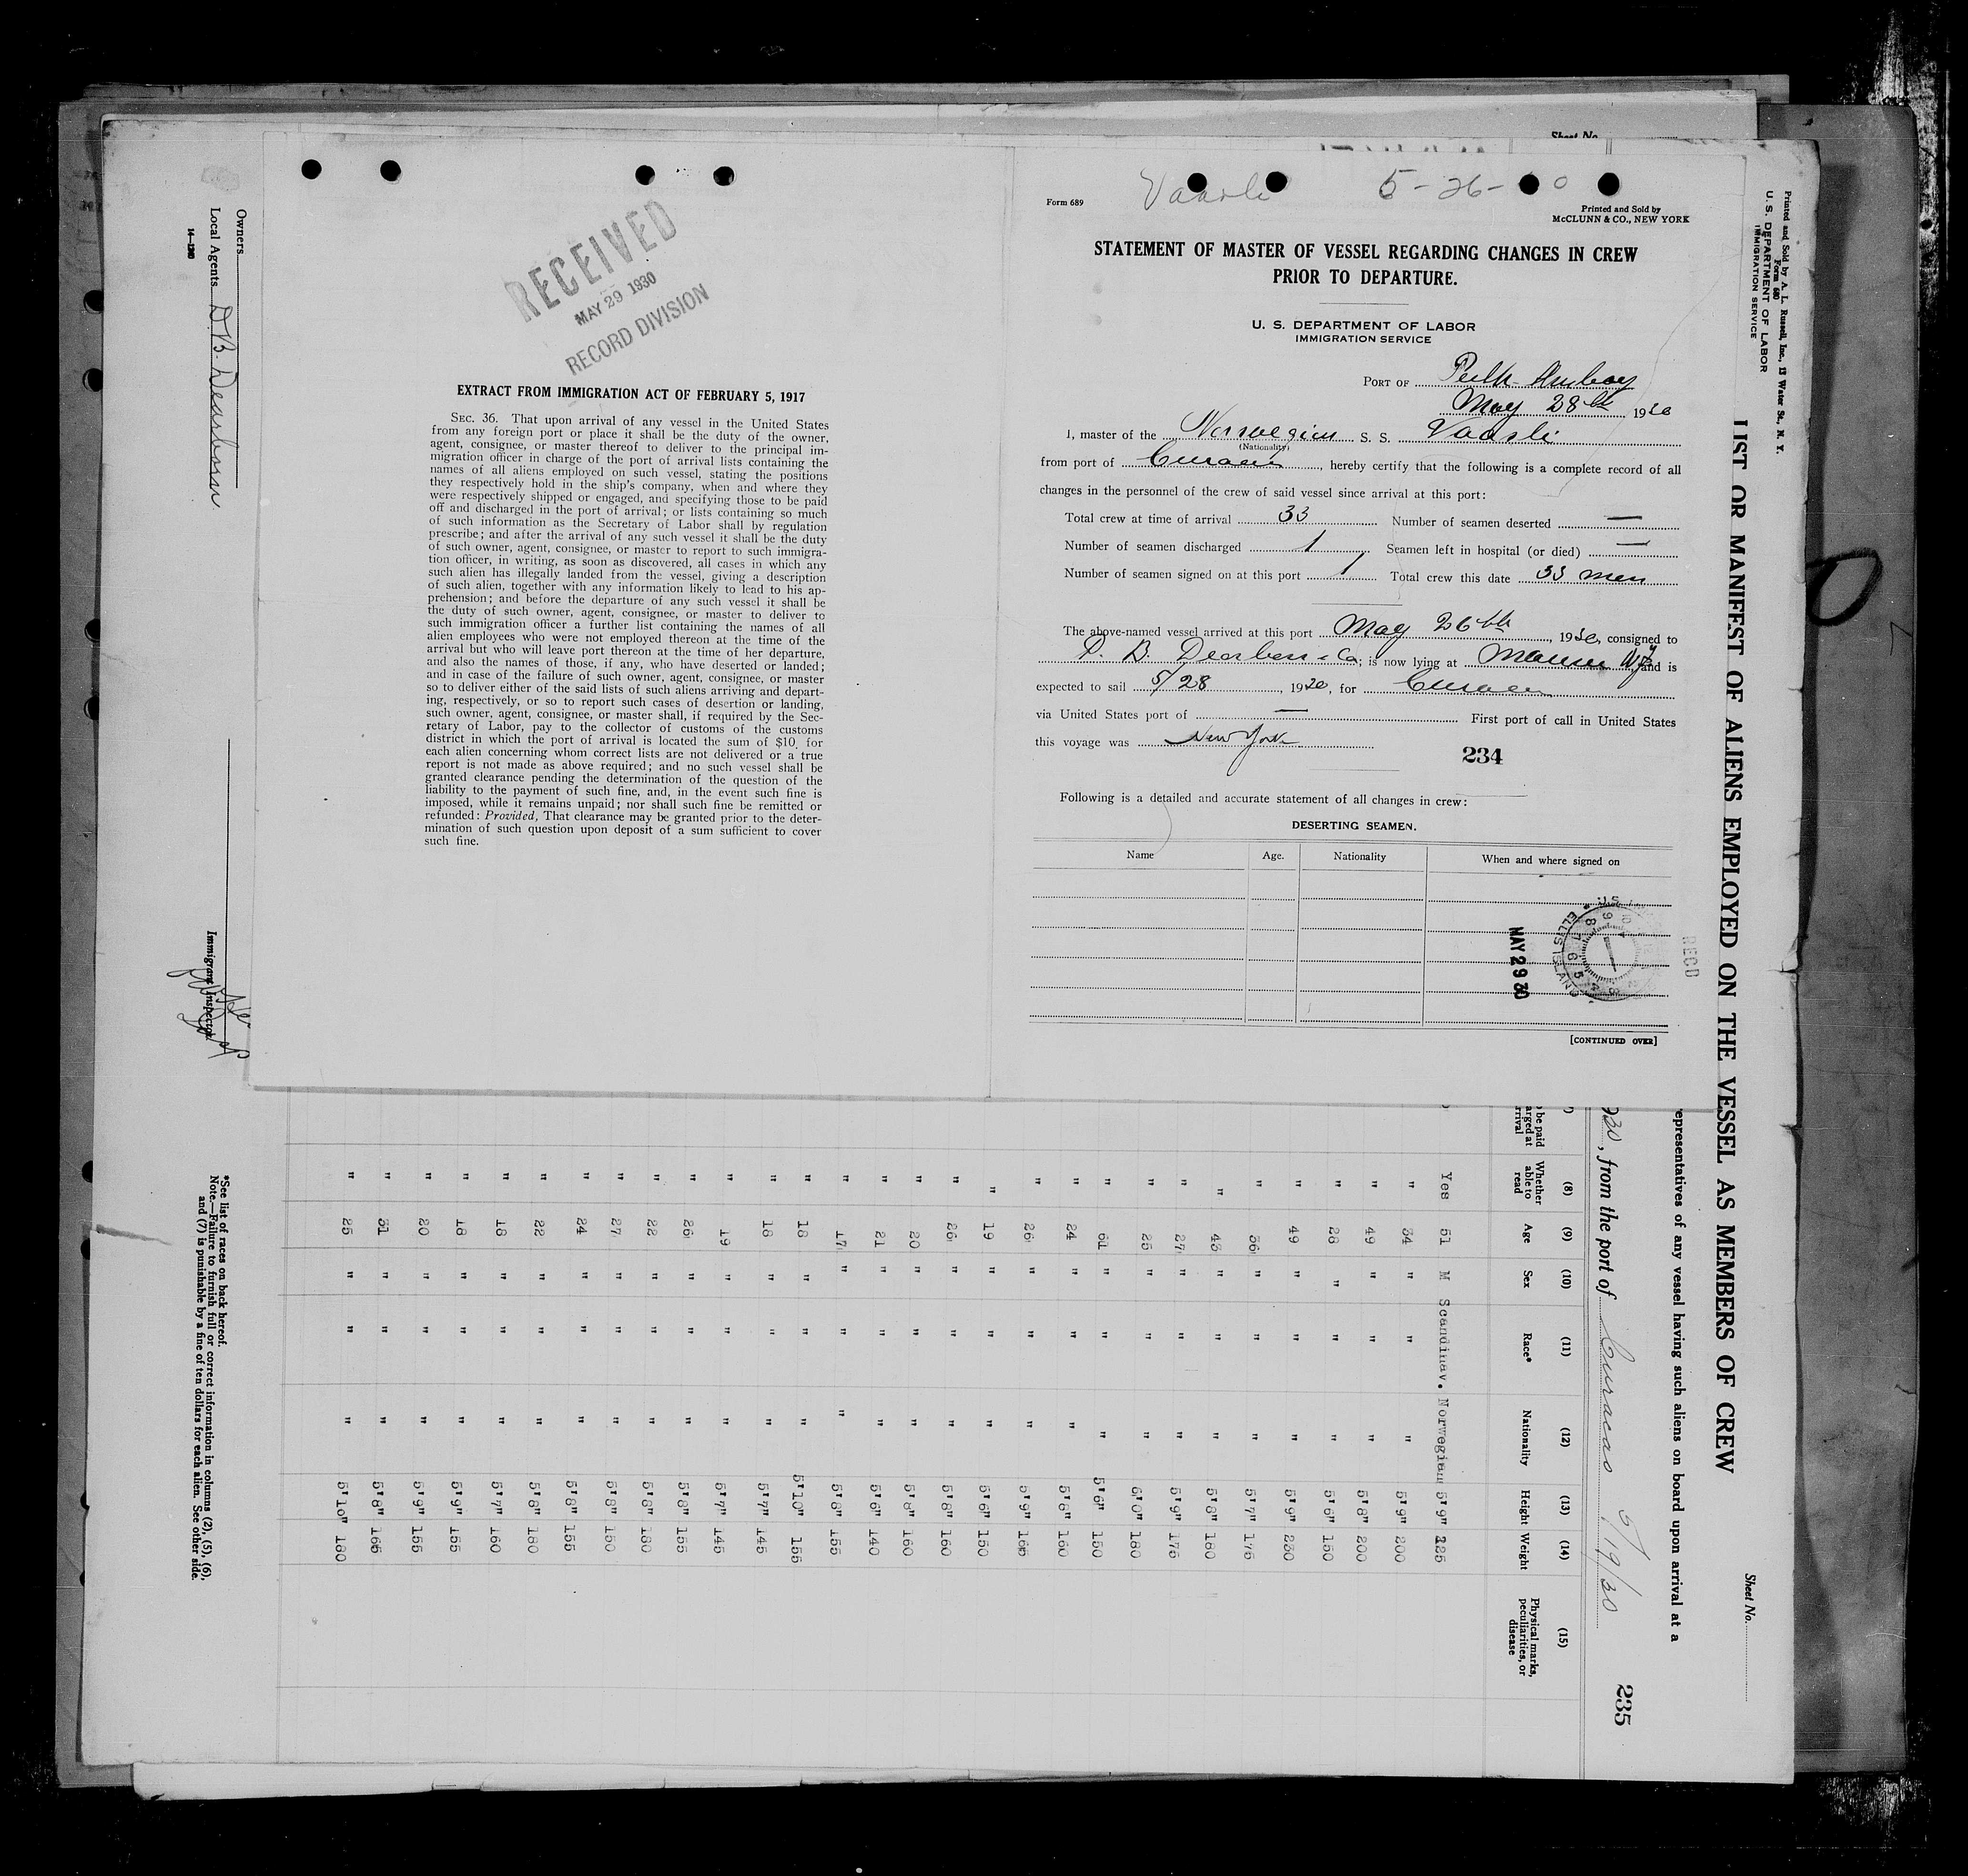 Sheet No.
RECEIVED
MAY 29 1930
RECORD DIVISION
EXTRACT FROM IMMIGRATION ACT OF FEBRUARY 5, 1917
SEC. 36. That upon arrival of any vessel in the United States
from any foreign port or place it shall be the duty of the owner,
agent, consignee, or master thereof to deliver to the principal im-
migration officer in charge of the port of arrival lists containing the
names of all aliens employed on such vessel, stating the positions
they respectively hold in the ship's company, when and where they
were respectively shipped or engaged, and specifying those to be paid
off and discharged in the port of arrival; or lists containing so much
of such information as the Secretary of Labor shall by regulation
prescribe; and after the arrival of any such vessel it shall be the duty
of such owner, agent, consignee, or master to report to such immigra-
tion officer, in writing, as soon as discovered, all cases in which any
such alien has illegally landed from the vessel, giving a description
of such alien, together with any information likely to lead to his ap-
prehension; and before the departure of any such vessel it shall be
the duty of such owner, agent, consignee, or master to deliver to
such immigration officer a further list containing the names of all
alien employees who were not employed thereon at the time of the
arrival but who will leave port thereon at the time of her departure,
and also the names of those, if any, who have deserted or landed;
and in case of the failure of such owner, agent, consignee, or master
so to deliver either of the said lists of such aliens arriving and depart-
ing, respectively, or so to report such cases of desertion or landing,
such owner, agent, consignee, or master shall, if required by the Sec-
retary of Labor, pay to the collector of customs of the customs
district in which the port of arrival is located the sum of $10 for
each alien concerning whom correct lists are not delivered or a true
report is not made as above required; and no such vessel shall be
granted clearance pending the determination of the question of the
liability to the payment of such fine, and, in the event such fine is
imposed, while it remains unpaid; nor shall such fine be remitted or
refunded: Provided, That clearance may be granted prior to the deter-
mination of such question upon deposit of a sum sufficient to cover
such fine.
Form 689
Vaarli 5-26-0
Printed and Sold by
McCLUNN & CO., NEW YORK
STATEMENT OF MASTER OF VESSEL REGARDING CHANGES IN CREW
PRIOR TO DEPARTURE.
U. S. DEPARTMENT OF LABOR
IMMIGRATION SERVICE
PORT OF Perth Amboy
May 28th, 1930
I, master of the Norwegian S. S. Vaarli
(Nationality)
from port of Curacao, hereby certify that the following is a complete record of all
changes in the personnel of the crew of said vessel since arrival at this port:
Total crew at time of arrival 33 Number of seamen deserted —
Number of seamen discharged 1 Seamen left in hospital (or died) —
Number of seamen signed on at this port 1 Total crew this date 33 men
The above-named vessel arrived at this port May 26th, 1930, consigned to
D. B. Dearborn & Co; is now lying at and is
expected to sail 5/28, 1930, for Curacao
via United States port of — First port of call in United States
this voyage was New York
234
Following is a detailed and accurate statement of all changes in crew:
DESERTING SEAMEN.
Name Age. Nationality When and where signed on
MAY 29 30
ELLIS ISLAND
RECD
[CONTINUED OVER]
Printed and Sold by A. L. Russell, Inc., 13 Water St., N. Y.
Form 680
U. S. DEPARTMENT OF LABOR
IMMIGRATION SERVICE
Sheet No.
LIST OR MANIFEST OF ALIENS EMPLOYED ON THE VESSEL AS MEMBERS OF CREW
epresentatives of any vessel having such aliens on board upon arrival at a
930, from the port of Curacao 5/19/30
235
(8) (9) (10) (11) (12) (13) (14) (15)
o be paid
arged at
rrival
Whether
able to
read
Age Sex Race* Nationality Height Weight
Physical marks,
peculiarities, or
disease
Yes 51 M Scandinav. Norwegian 5'9" 225
" 34 " " " 5'9" 200
" 49 " " " 5'8" 200
" 28 " " " 5'6" 150
" 49 " " " 5'9" 230
" 36 " " " 5'7" 175
" 43 " " " 5'8" 180
" 27 " " " 5'9" 175
" 25 " " " 6'0" 180
" 61 " " " 5'6" 150
" 24 " " " 5'8" 160
" 26 " " " 5'9" 165
" 19 " " " 5'6" 150
" 26 " " " 5'8" 160
" 20 " " " 5'8" 160
" 21 " " " 5'6" 140
" 17 " " " 5'8" 155
" 18 " " " 5'10" 155
" 18 " " " 5'7" 145
" 19 " " " 5'7" 145
" 26 " " " 5'8" 155
" 22 " " " 5'8" 180
" 27 " " " 5'8" 150
" 24 " " " 5'8" 155
" 22 " " " 5'8" 180
" 18 " " " 5'7" 160
" 18 " " " 5'9" 155
" 20 " " " 5'9" 155
" 31 " " " 5'8" 165
" 25 " " " 5'10" 180
Owners
Local Agents D. B. Dearborn
14—1240
Immigrant Inspector
*See list of races on back hereof.
Note.—Failure to furnish full or correct information in columns (2), (5), (6),
and (7) is punishable by a fine of ten dollars for each alien. See other side.